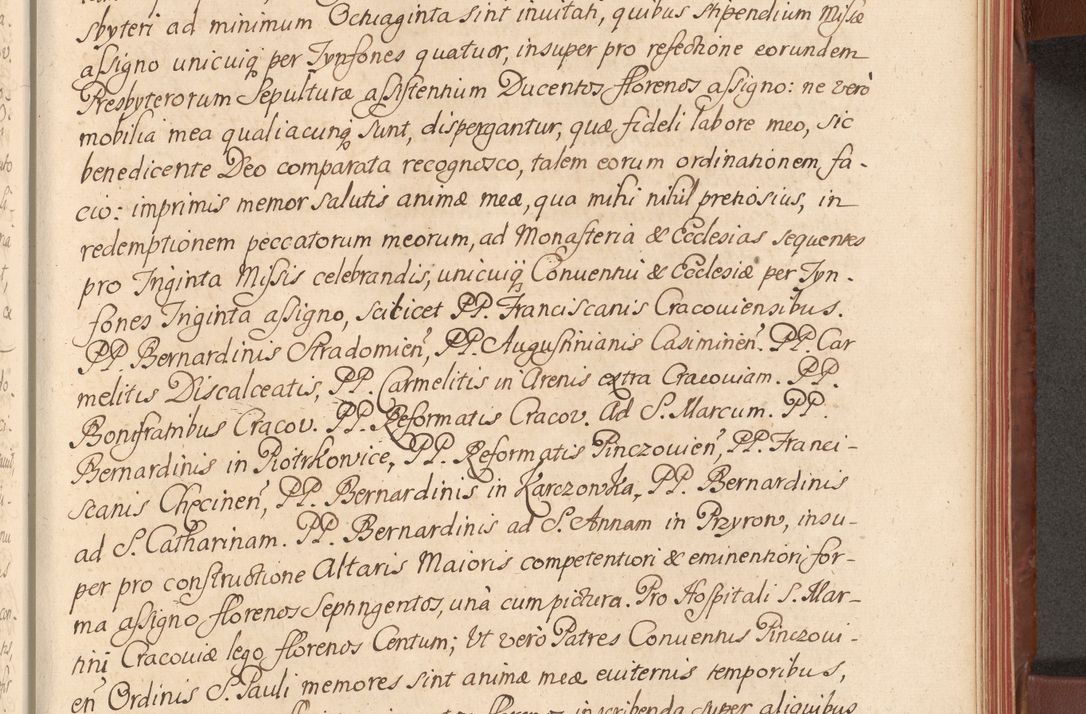 sbyteri ad minimum Octuaginta sint invitati, quibus stipendium Missæ
assigno unicuiq; per Tynfones quatuor, insuper pro refectione eorundem
Presbyterorum Sepulturæ assistentium Ducentos florenos assigno: ne verò
mobilia mea qualiacunq; sunt, dispergantur, quæ fideli labore meo, sic
benedicente Deo comparata recognosco, talem eorum ordinationem fa-
cio: imprimis memor salutis animæ meæ, qua mihi nihil pretiosius, in
redemptionem peccatorum meorum, ad Monasteria & Ecclesias sequentes
pro Triginta Missis celebrandis, unicuiq; Conventui & Ecclesiæ per Tyn-
fones Triginta assigno, scilicet PP. Franciscanis Cracoviensibus.
PP. Bernardinis Stradomień, PP. Augustinianis Casimineń. PP. Car
melitis Discalceatis, PP. Carmelitis in Arenis extra Cracoviam. PP.
Bonifratribus Cracov. PP. Reformatis Cracov. Ad S. Marcum. PP.
Bernardinis in Piotrkowice, PP. Reformatis Pinczovień, PP. Franci-
scanis Chęcineń, PP. Bernardinis in Karczowka, PP. Bernardinis
ad S. Catharinam. PP. Bernardinis ad S. Annam in Przyrow, insu-
per pro constructione Altaris Maioris competentiori & eminentiori for-
ma assigno florenos Septingentos, unà cum pictura. Pro Hospitali S. Mar-
tini Cracoviæ lego florenos Centum; Ut verò Patres Conventus Pinczovi-
eń Ordinis S. Pauli memores sint animæ meæ eviternis temporibus,
florenos inscribenda super aliquibus